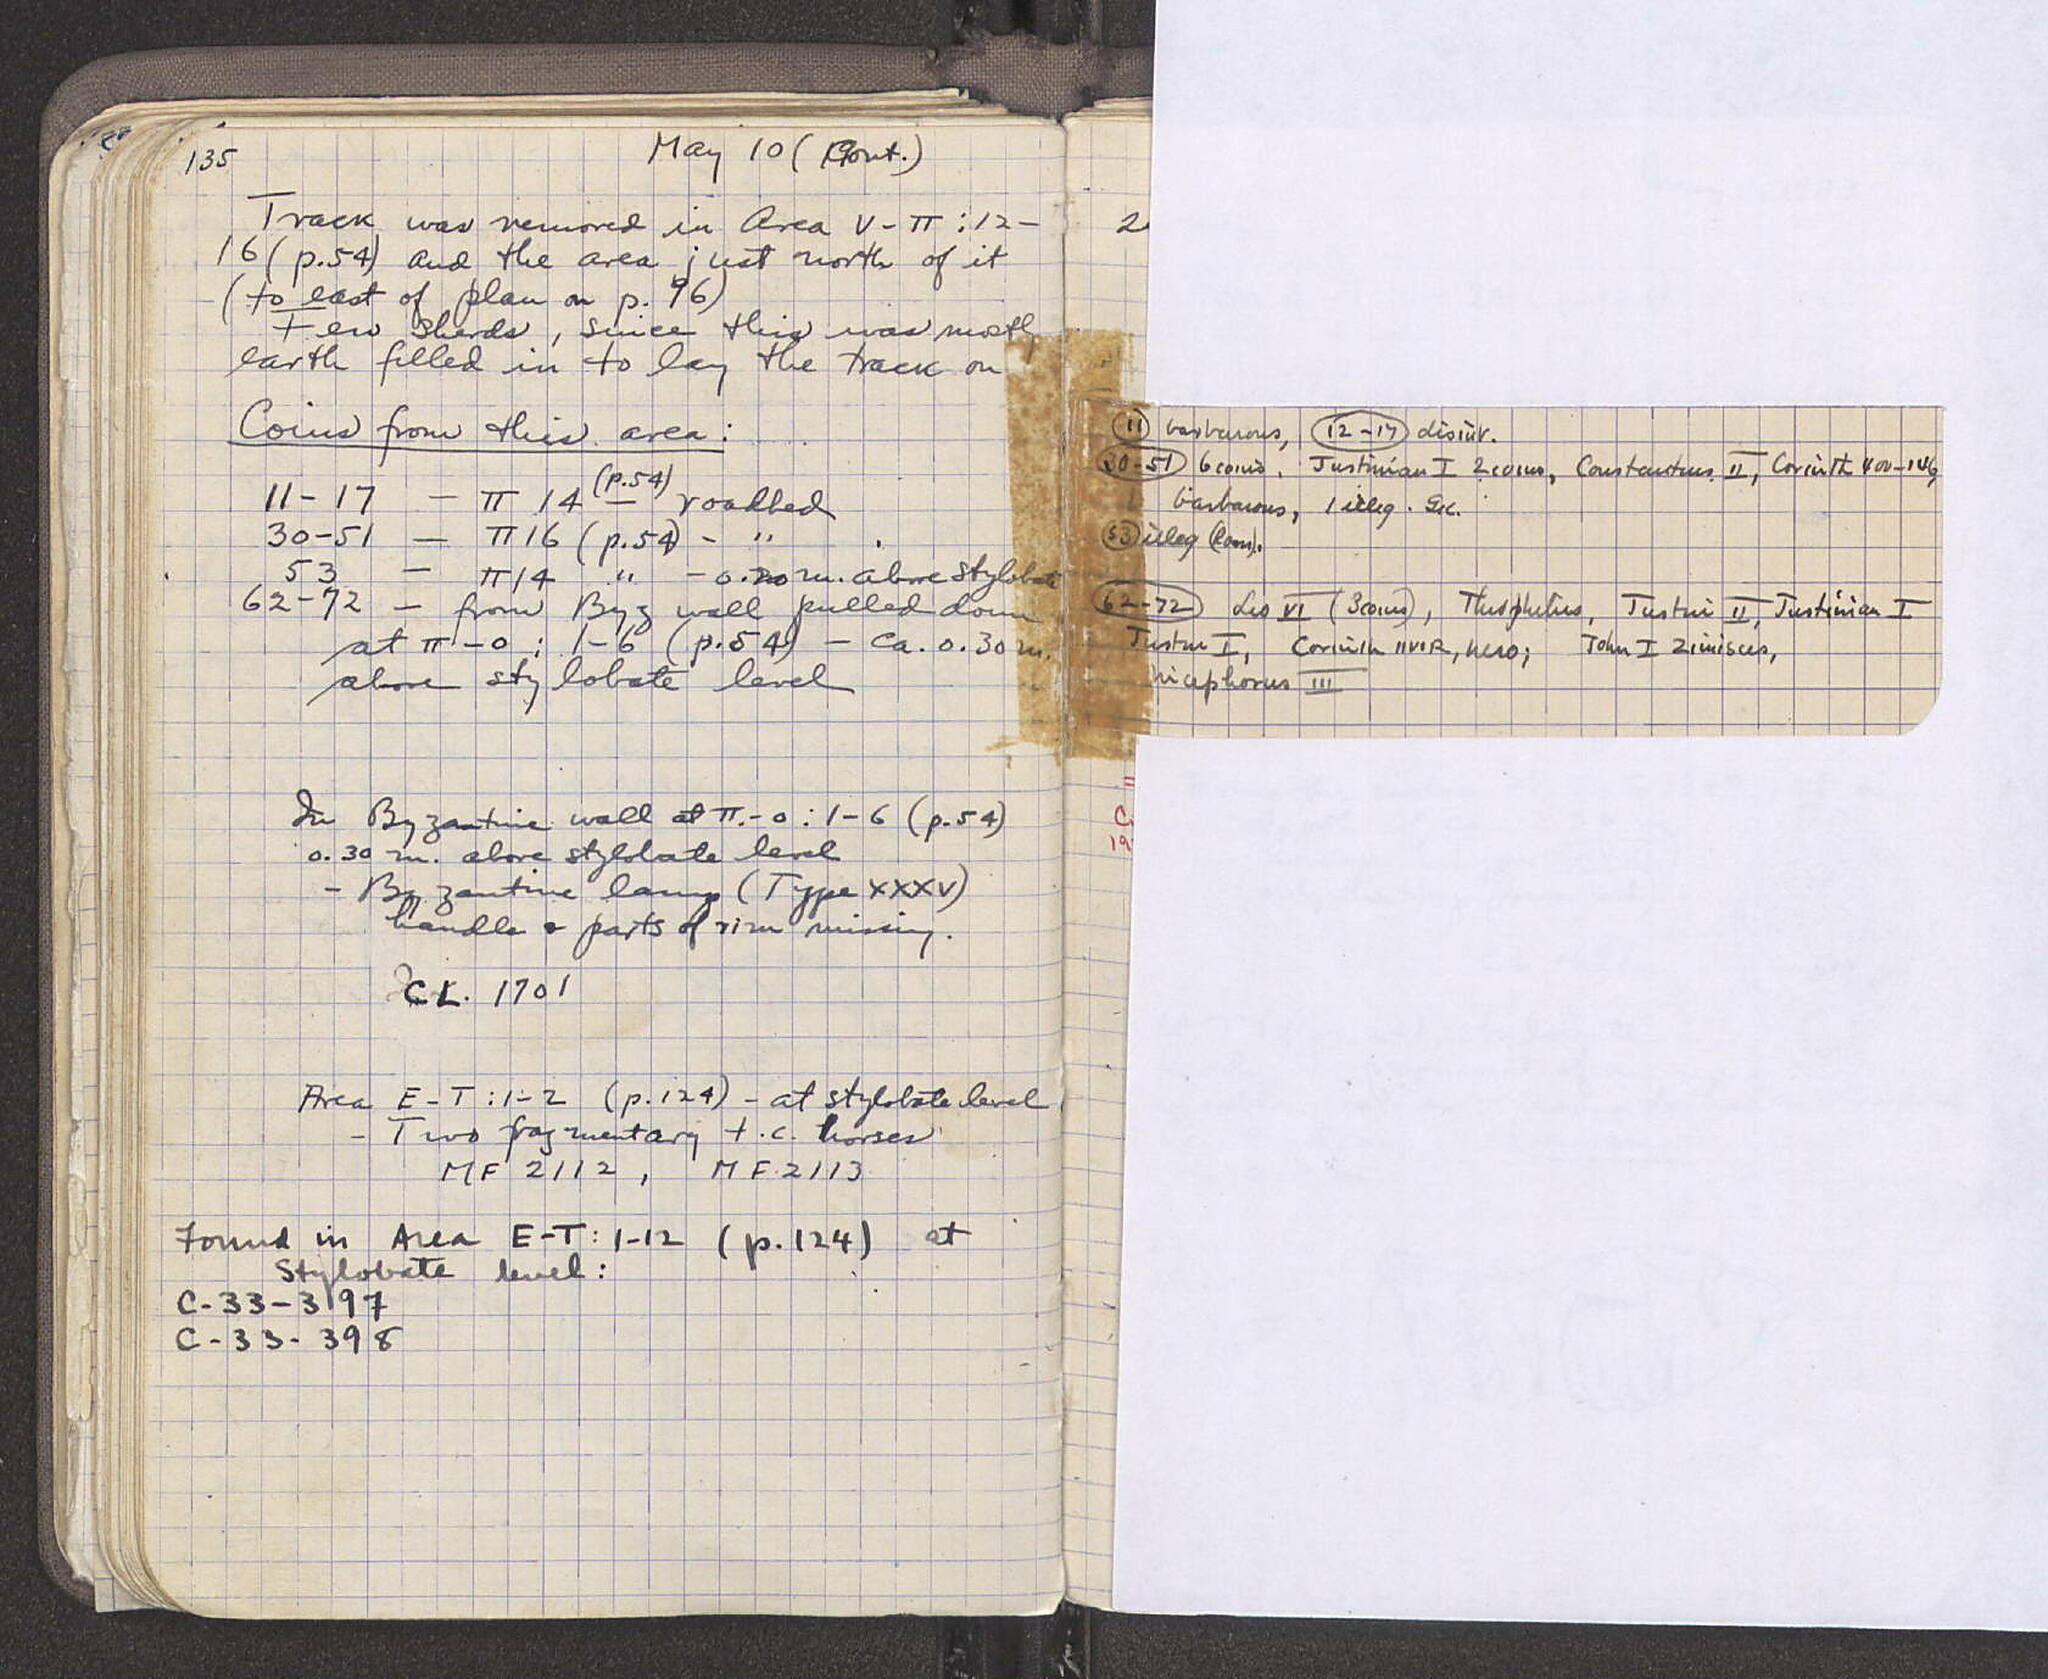 135
May 10 (Cont.)
Track was removed in Area V-π:12-
16 (p.54) and the area just north of it
(to east of plan on p. 96)
Few sherds, since this was mostly
earth filled in to lay the track on
Coins from this area:
11-17 - π 14 (p.54) - roadbed
30-51 - π16 (p.54) - "
53 - π14 " - 0.20 m. above stylobate
62-72 - from Byz wall pulled down
at π-o: 1-6 (p.54) - ca. 0.30 m.
above stylobate level
In Byzantine wall at π-o: 1-6 (p.54)
0.30 m. above stylobate level
- Byzantine lamp (Type XXXV)
handle & parts of rim missing.
CL. 1701
Area E-T:1-2 (p.124) - at stylobate level
- Two fragmentary t.c. horses
MF 2112, MF 2113
Found in Area E-T: 1-12 (p.124) at
Stylobate level:
C-33-397
C-33-398
11 barbarous, 12-17 disint.
30-51 6 coins, Justinian I 2 coins, Constantius II, Corinth 400-146,
1 barbarous, 1 illeg. Gk.
53 illeg (Rom).
62-72 Leo VI (3 coins), Theophilus, Justin II, Justinian I
Justin I, Corinth IIVIR, Nero; John I Zimisces,
Nicephorus III